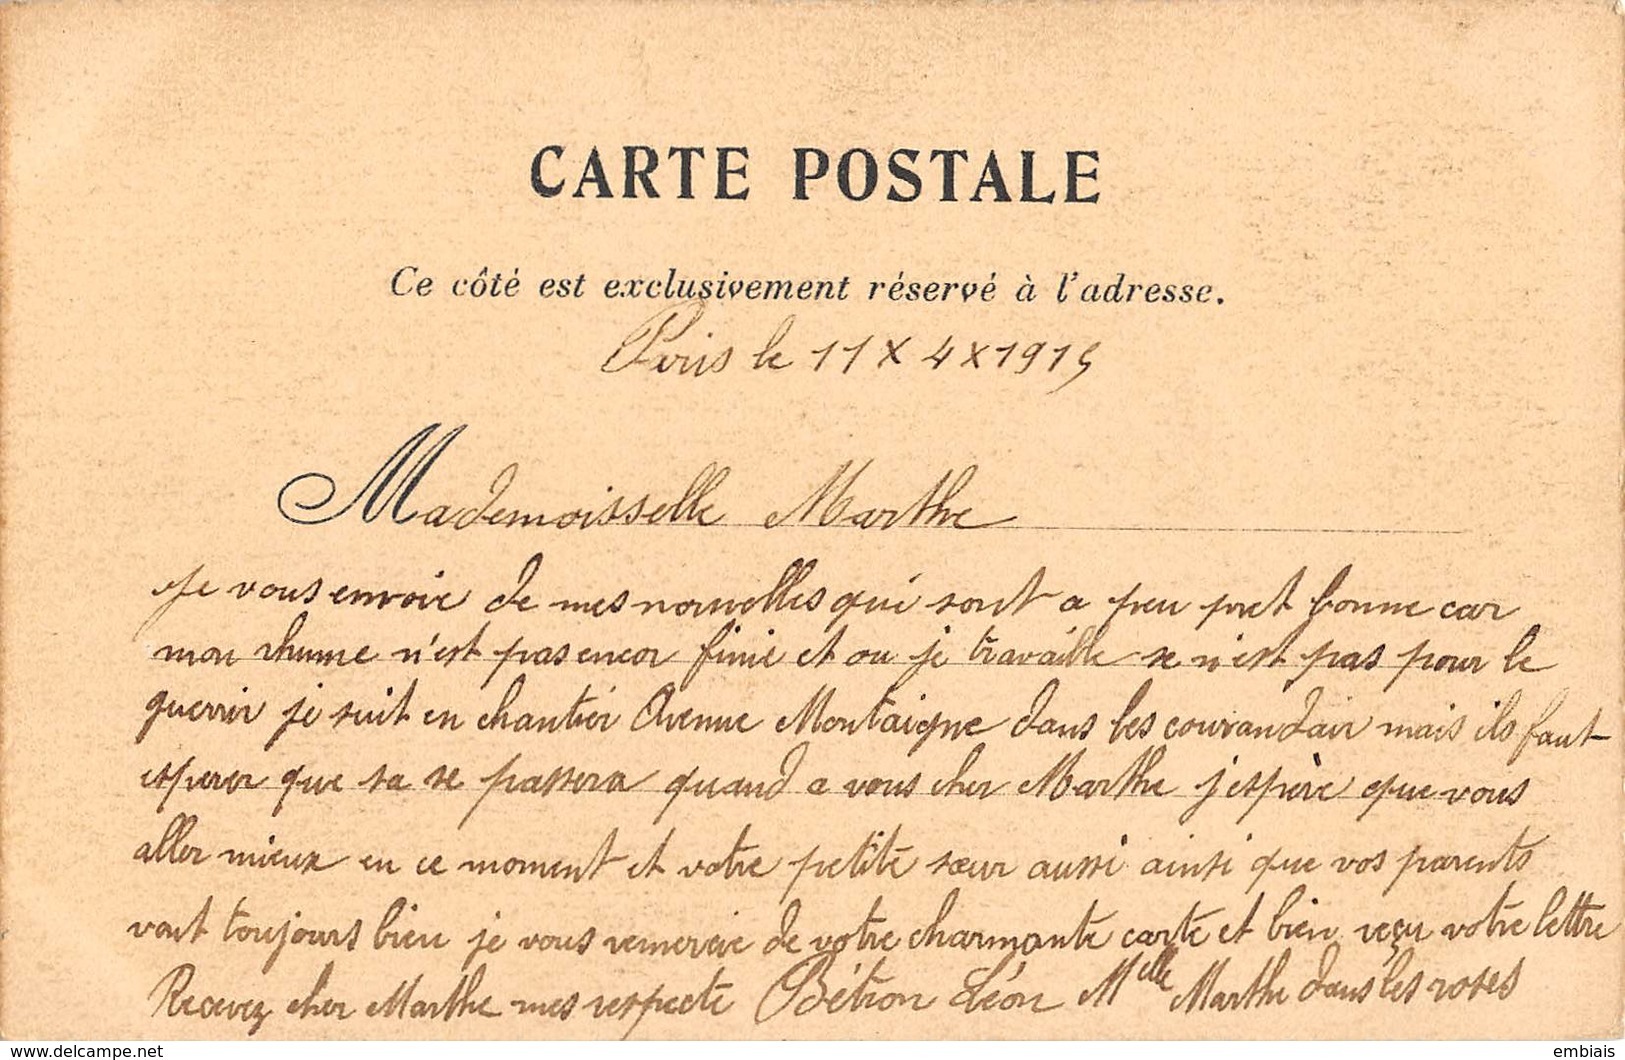 CARTE POSTALE
Ce côté est exclusivement réservé à l'adresse.
Paris le 11 x 4 x 1915
Mademoisselle Marthe
Je vous envoie de mes nouvelles qui sont a peu pret bonne car
mon rhume n'est pas encor finie et ou je travaille se n'est pas pour le
guerrir je suit en chantier Avenue Montaigne dans les courandair mais ils faut
esperer que sa se passera quand a vous cher Marthe j'espère que vous
aller mieux en ce moment et votre petite sœur aussi ainsi que vos parents
vont toujours bien je vous remercie de votre charmante carte et bien reçu votre lettre
Recevez cher Marthe mes respects Bétron Léon Melle Marthe dans les roses
delcampe.net
embiais